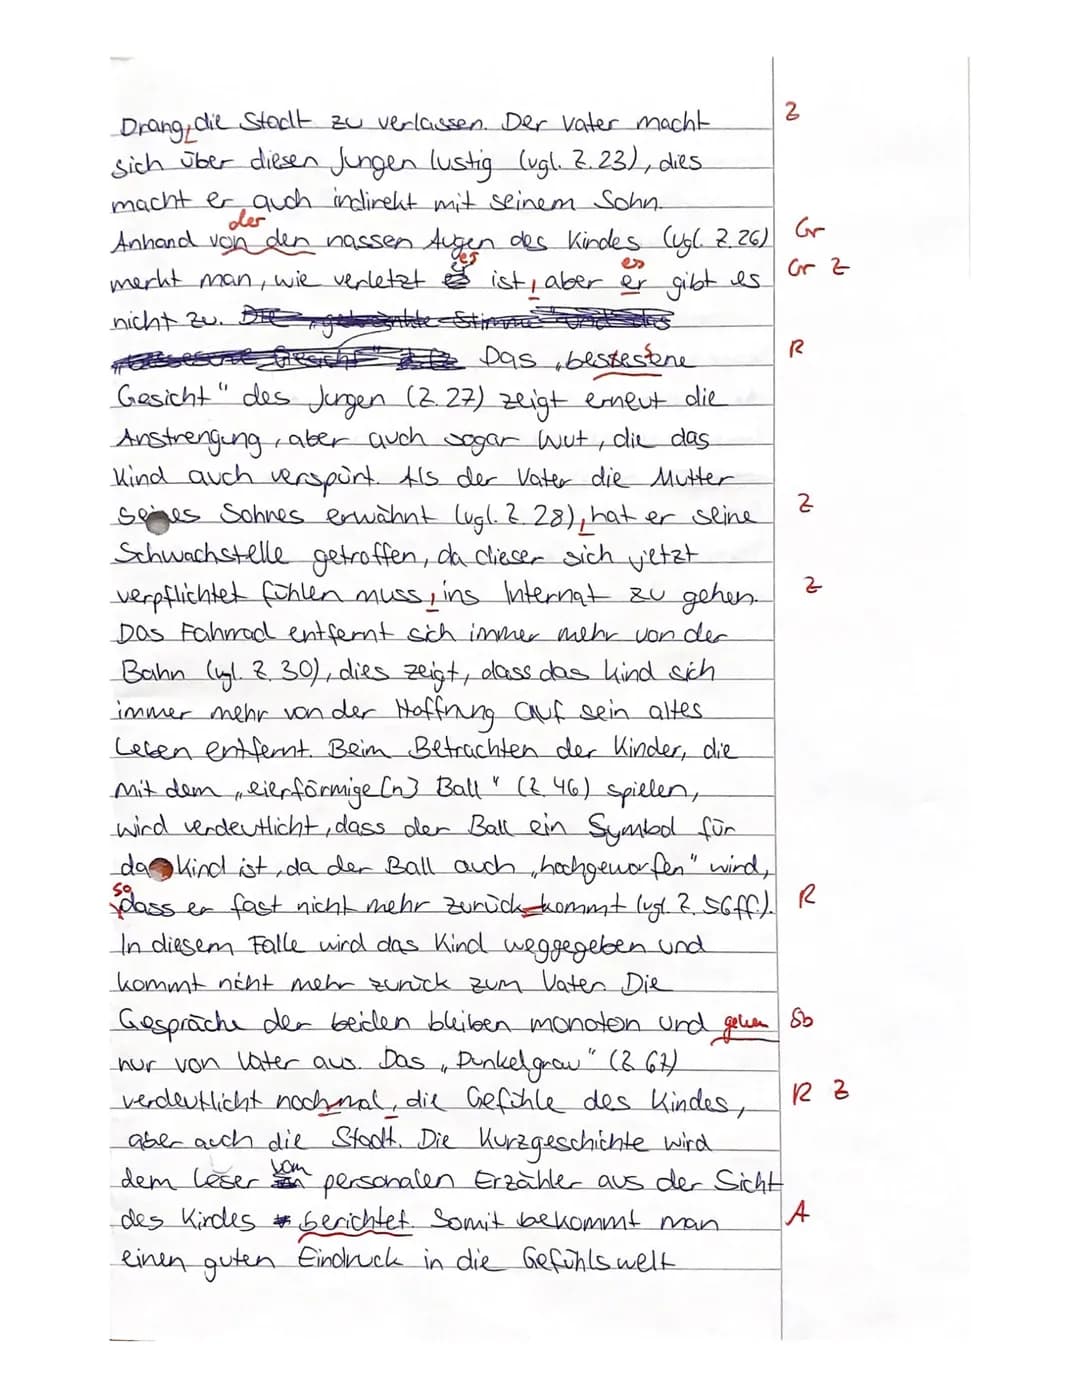 Drang, die Stadt zu verlassen. Der Vater macht Z
sich über diesen Jungen lustig (vgl. Z. 23), dies
macht er auch indirekt mit seinem Sohn.
der
Anhand von den nassen Augen des Kindes (vgl. Z. 26) Gr
es es
merkt man, wie verletzt ist, aber er gibt es Gr Z
nicht zu.
Das „bestestene R
Gesicht" des Jungen (Z. 27) zeigt erneut die
Anstrengung, aber auch sogar Wut, die das
Kind auch verspürt. Als der Vater die Mutter
seines Sohnes erwähnt (vgl. Z. 28), hat er seine Z
Schwachstelle getroffen, da dieser sich jetzt
verpflichtet fühlen muss, ins Internat zu gehen. Z
Das Fahrrad entfernt sich immer mehr von der
Bahn (vgl. Z. 30), dies zeigt, dass das Kind sich
immer mehr von der Hoffnung auf sein altes
Leben entfernt. Beim Betrachten der Kinder, die
mit dem „eierförmige[n] Ball" (Z. 46) spielen,
wird verdeutlicht, dass der Ball ein Symbol für
das Kind ist, da der Ball auch „hochgeworfen" wird,
so
dass er fast nicht mehr zurück kommt (vgl. Z. 56ff.). R
In diesem Falle wird das Kind weggegeben und
kommt nicht mehr zurück zum Vater. Die
Gespräche der beiden bleiben monoton und gehen Sb
nur von Vater aus. Das „Dunkelgrau" (Z. 67)
verdeutlicht nochmal, die Gefühle des Kindes, R Z
aber auch die Stadt. Die Kurzgeschichte wird
dem Leser vom personalen Erzähler aus der Sicht
des Kindes berichtet. Somit bekommt man A
einen guten Eindruck in die Gefühlswelt